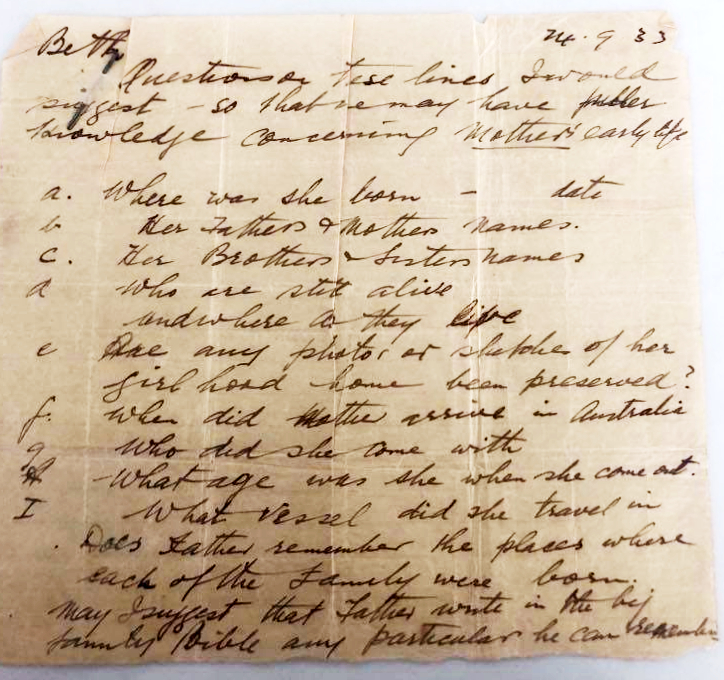 Beth 24.9 33
Questions on tese lines I would
suggest - so that we may have fuller
knowledge concerning Mother's early life
a. Where was she born - date
b Her Fathers & Mothers names.
c. Her Brothers & Sisters names
d who are still alive
and where do they live
e Are any photos or sketches of her
girl hood home been preserved?
f. when did Mother arrive in Australia
g who did she come with
H What age was she when she come out.
I What vessel did she travel in
. Does Father remember the places where
each of the Family were born.
May I suggest that Father write in the big
family Bible any particular he can remember